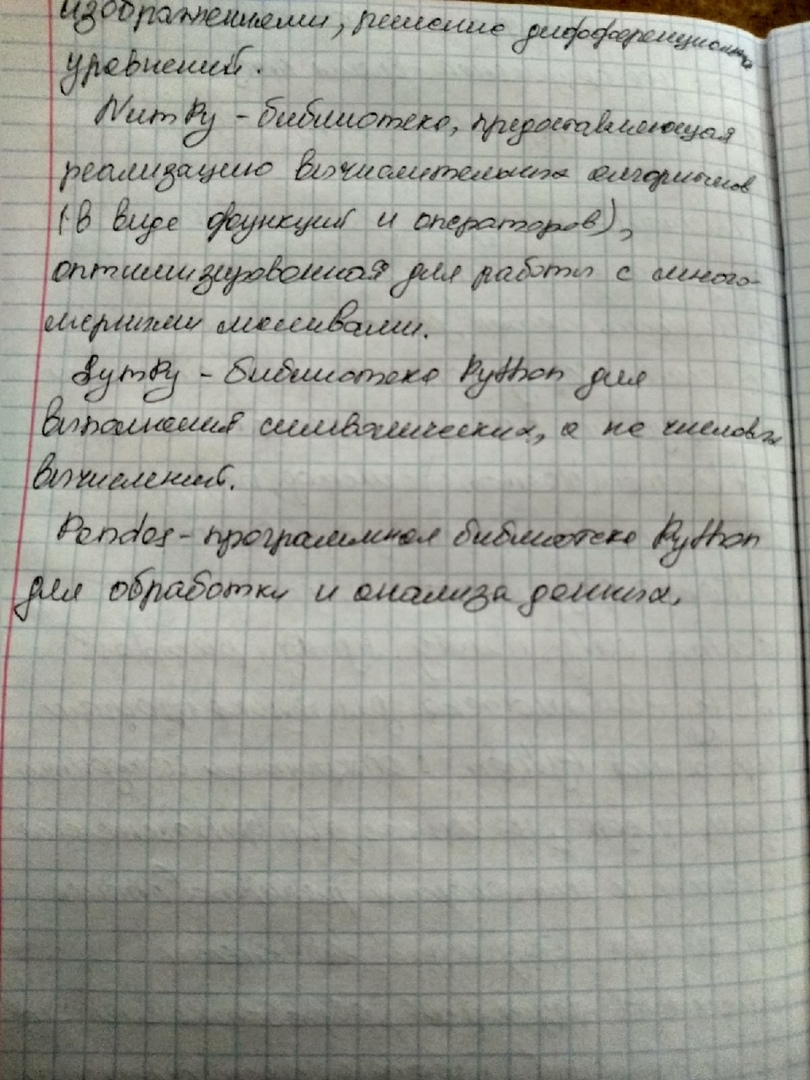 изображениями, решение дифференциальных
уравнений.
NumPy - библиотека, предоставляющая
реализацию вычислительных алгоритмов
(в виде функций и операторов),
оптимизированная для работы с много-
мерными массивами.
SymPy - библиотека Python для
выполнения символических, а не числовых
вычислений.
Pandas - программная библиотека Python
для обработки и анализа данных.